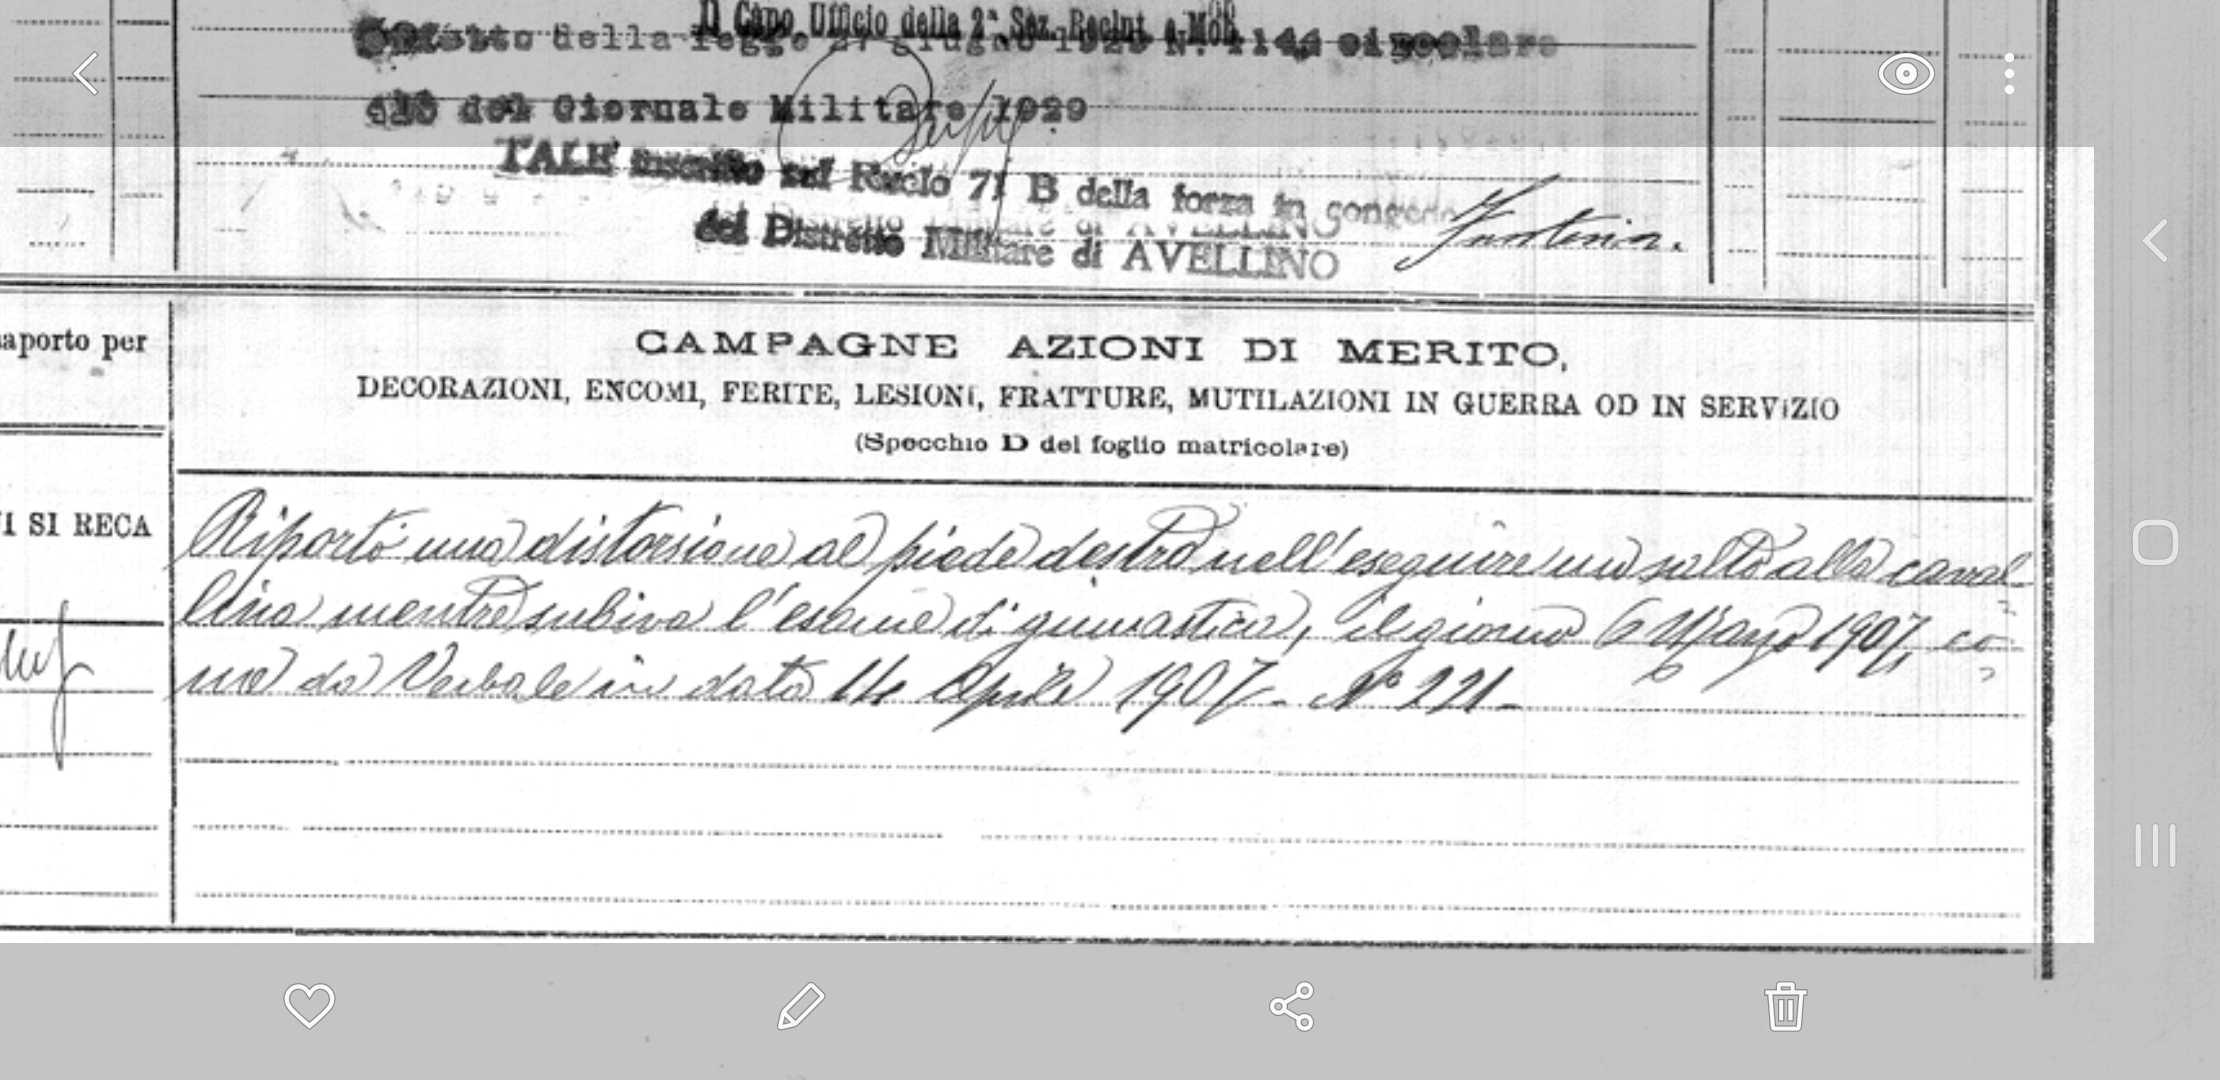 Il Capo Ufficio della 2ª Sez. Reclut. e Mob.
della legge 27 giugno 1929 N. 1144 circolare
del Giornale Militare 1929
TALE inscritto sul Ruolo 71 B della forza in congedo
del Distretto Militare di AVELLINO
aporto per
CAMPAGNE AZIONI DI MERITO,
DECORAZIONI, ENCOMI, FERITE, LESIONI, FRATTURE, MUTILAZIONI IN GUERRA OD IN SERVIZIO
(Specchio D del foglio matricolare)
I SI RECA
Riportò una distorsione al piede destro nell'eseguire un salto alla caval-
lina mentre subiva l'esame di ginnastica, il giorno 6 Marzo 1907, co-
me da Verbale in data 14 Aprile 1907 - N° 221 -